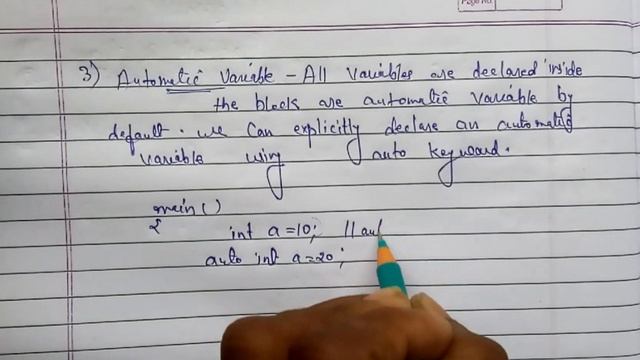 Page No.
3) Automatic Variable - All variables are declared inside
the block are automatic variable by
default. we can explicitly declare an automatic
variable using auto keyword.
main()
{
int a=10; // au
auto int a=20;